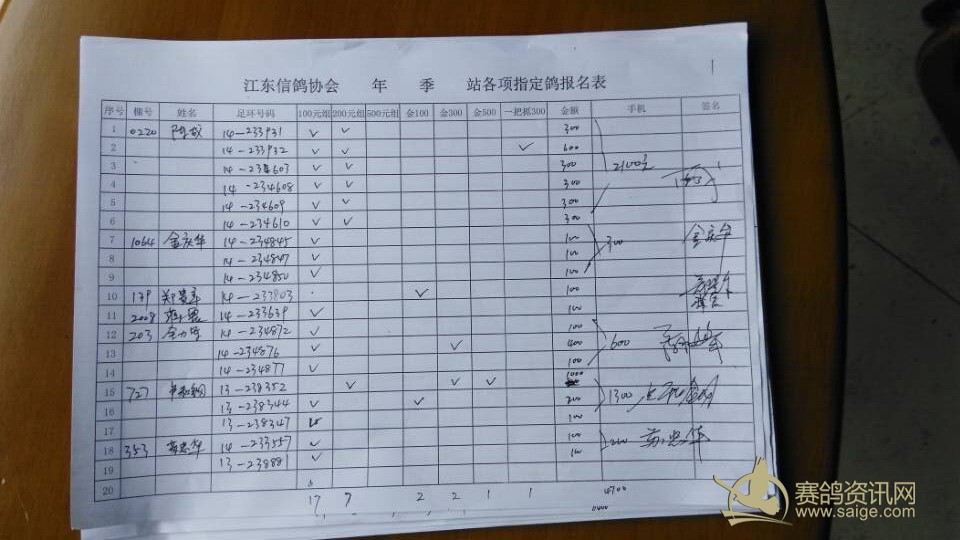 江东信鸽协会 年 季 站各项指定鸽报名表
序号 棚号 姓名 足环号码 100元组 200元组 500元组 金100 金300 金500 一把抓300 金额 手机 签名
1 0220 14-233931 ✓ ✓ 300
2 14-233932 ✓ ✓ ✓ 600
3 14-234603 ✓ ✓ 300 2100元
4 14-234608 ✓ ✓ 300
5 14-234609 ✓ ✓ 300
6 14-234610 ✓ ✓ 300
7 1064 金庆华 14-234845 ✓ 100 300 金庆华
8 14-234847 ✓ 100
9 14-234850 ✓ 100
10 179 14-233803 ✓ 100
11 2008 14-233639 ✓ 100
12 203 14-234872 ✓ 100
13 14-234876 ✓ ✓ 400 600
14 14-234877 ✓ 100
15 727 13-238352 ✓ ✓ ✓ 1000
16 13-238344 ✓ ✓ 200 1300
17 13-238347 ✓ 100
18 353 苏忠华 14-233557 ✓ 100 200 苏忠华
19 13-238881 ✓ 100
20
17 7 2 2 1 1 4700
赛鸽资讯网
www.saige.com